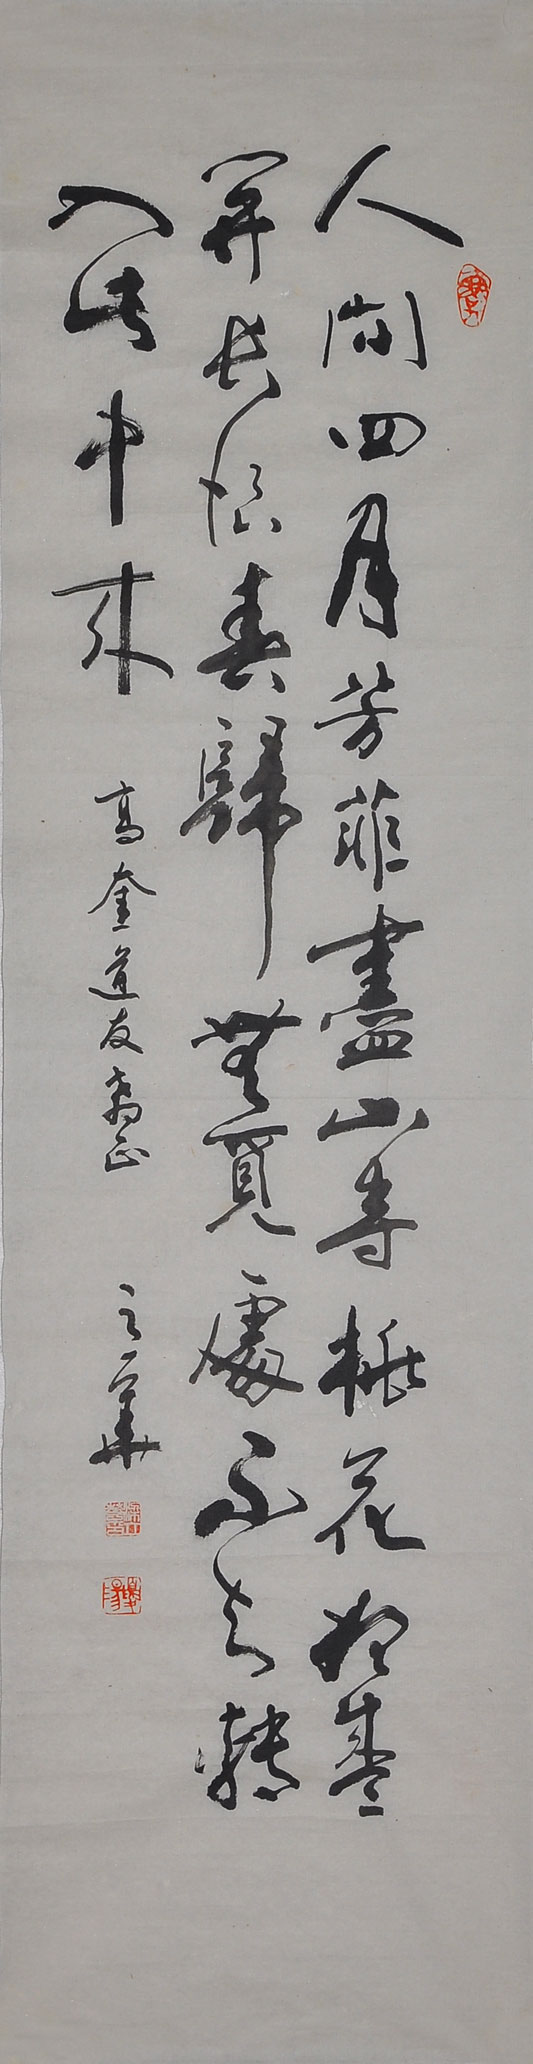 人間四月芳菲盡山寺桃花始盛
開長恨春歸無覓處不知轉
入此中來
高奎道友斧正
之華